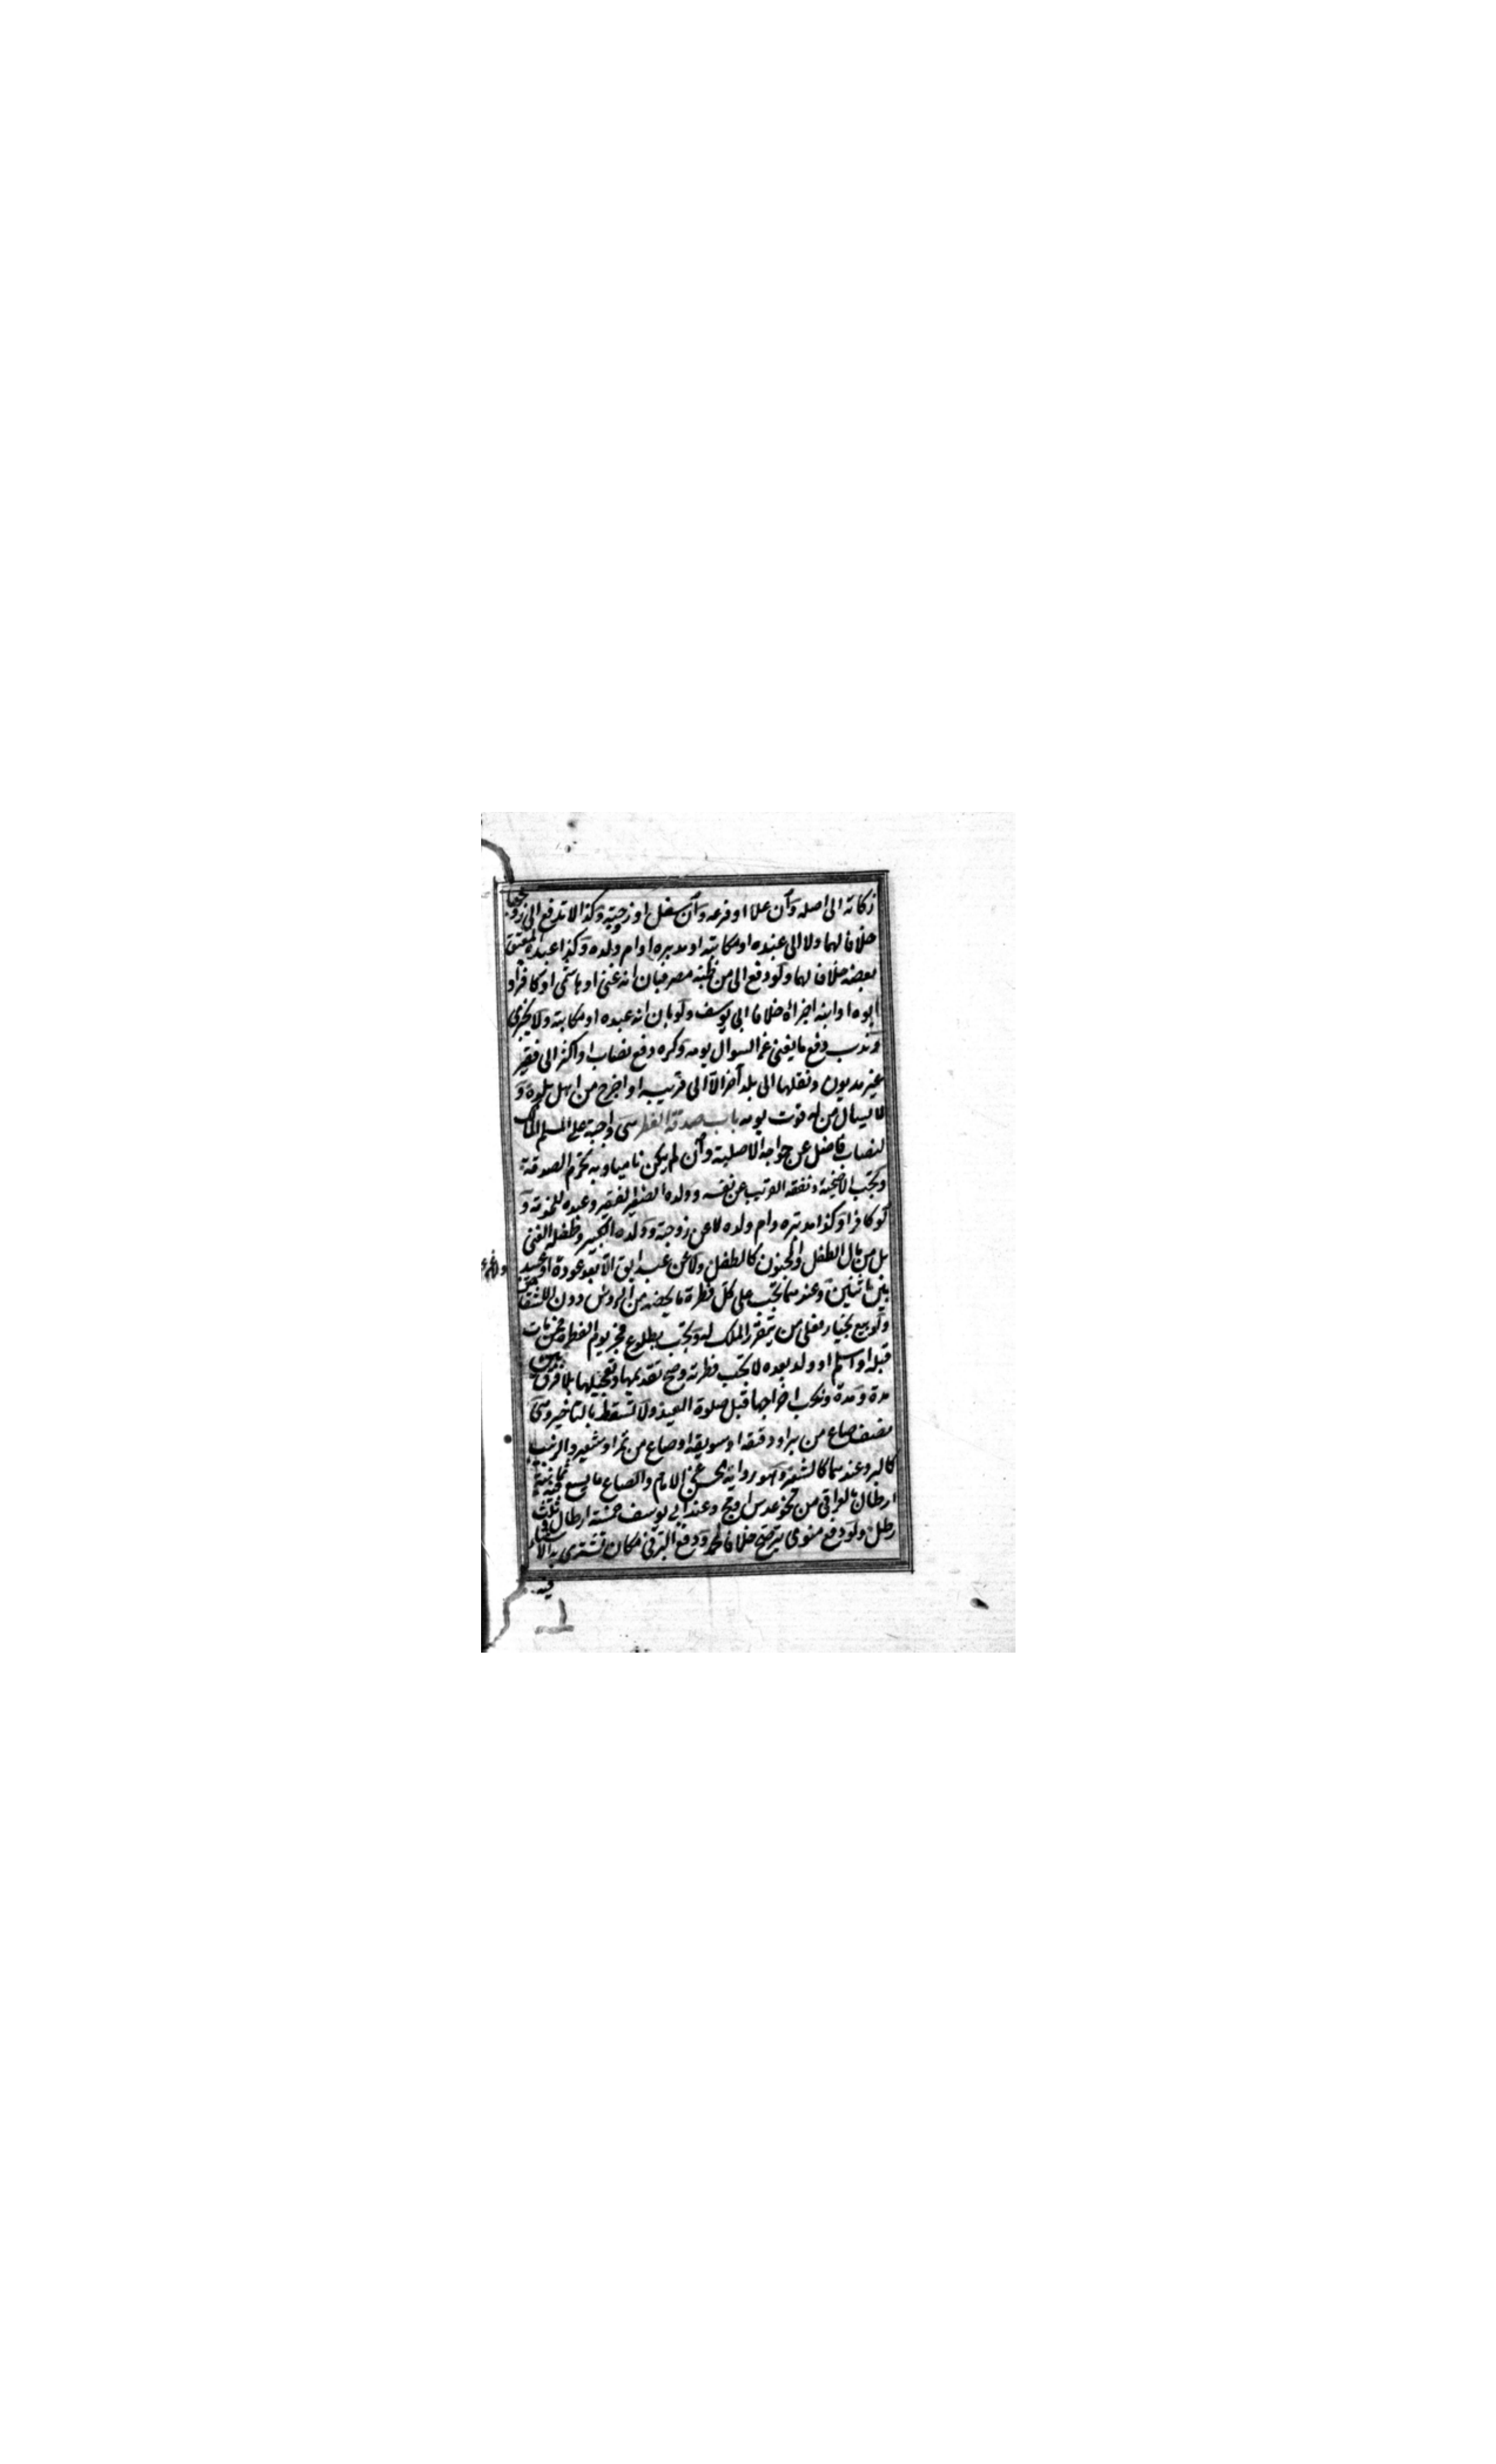 زكاته الى اصله وان علا او فرعه وان سفل او زوجته وكذا لا تدفع الى زوجها
خلافا لهما ولا الى عبده او مكاتبه او مدبره او ام ولده وكذا عبده المعتق
بعضه خلافا لهما ولو دفع الى من ظنه مصرفا فبان انه غنى او هاشمى او كافر او
ابوه او ابنه اجزاه خلافا لابى يوسف ولو بان انه عبده او مكاتبه ولا يجزى
وندب دفع ما يغنى عن السوال يومه وكره دفع نصاب او اكثر الى فقير
غير مديون ونقلها الى بلد آخر الا الى قريبه او احوج من اهل بلده و
لا يسال من له قوت يومه باب صدقة الفطر هى واجبة على المسلم المالك
لنصاب فاضل عن حوايجه الاصلية وان لم يكن ناميا وبه تحرم الصدقة
وتجب الاضحية ونفقة القريب عن نفسه وولده الصغير الفقير وعبده للخدمة و
لو كافرا وكذا مدبره وام ولده لا عن زوجته وولده الكبير وطفله الغنى
بل من مال الطفل والمجنون كالطفل ولا عن عبد ابق الا بعد عوده او عبيد
بين اثنين وعندهما تجب على كل فطرة ما يخصه من الروس دون الاشقاص
ولو بيع بخيار فعلى من يتقرر الملك له وتجب بطلوع فجر يوم الفطر فمن مات
قبله او اسلم او ولد بعده لا تجب فطرته وصح تقديمها وتعجيلها بلا فرق بين
مدة ومدة وندب اخراجها قبل صلوة العيد ولا تسقط بالتاخير وهى
نصف صاع من بر او دقيقه او سويقه او صاع من تمر او شعير والزبيب
كالبر وعندهما كالشعير وهو رواية الحسن عن الامام والصاع ما يسع فيه ثمانية
ارطال بالعراقى من نحو عدس او مج وعند ابى يوسف خمسة ارطال وثلث
رطل ولو دفع منوى بر صح خلافا لمحمد ودفع البر فى مكان تشترى به الاشياء
فيه